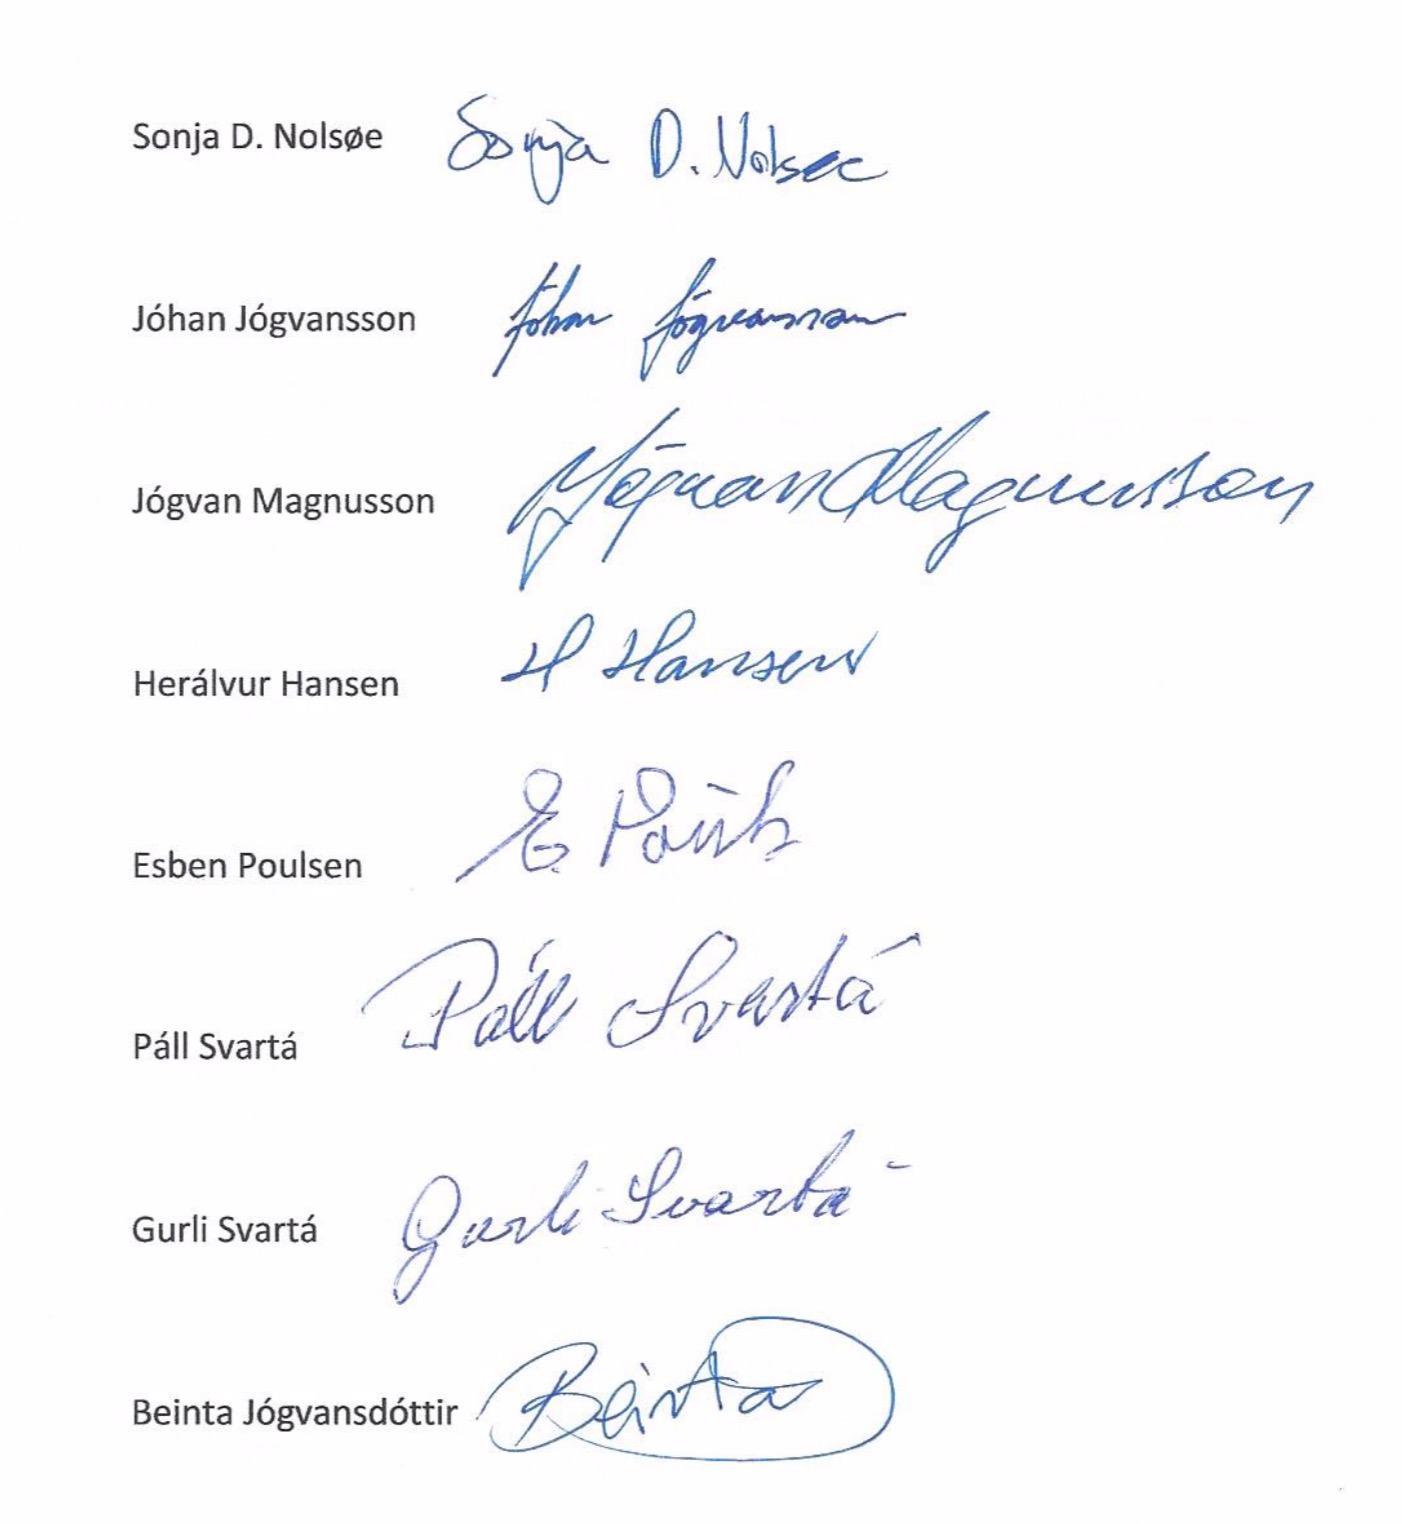 Sonja D. Nolsøe Sonja D. Nolsøe
Jóhan Jógvansson Jóhan Jógvansson
Jógvan Magnusson Jógvan Magnusson
Herálvur Hansen H Hansen
Esben Poulsen E
Páll Svartá Páll Svartá
Gurli Svartá Gurli Svartá
Beinta Jógvansdóttir Beinta